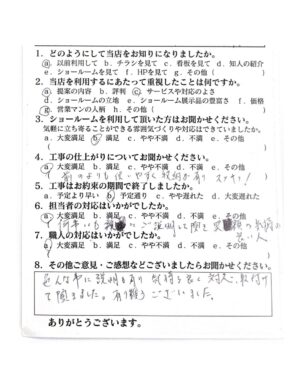 1. どのようにして当店をお知りになりましたか。
a. 以前利用して b. チラシを見て c. 看板を見て d. 知人の紹介
e. ショールームを見て f. HPを見て g. その他 ( )
2. 当店を利用するにあたって重視したことは何ですか。
a. 提案の内容 b. 評判 c. サービスや対応のよさ
d. ショールームの立地 e. ショールーム展示品の豊富さ f. 価格
g. 営業マンの人柄 h. その他 ( )
3. ショールームに関して頂いた方はお聞かせください。
気軽に立ち寄ることができる雰囲気づくりや対応はできていましたか。
a. 大変満足 b. 満足 c. やや不満 d. 不満 e. その他
( )
4. 工事の仕上がりについてお聞かせください。
a. 大変満足 b. 満足 c. やや不満 d. 不満 e. その他
( 前のよりも使いやすく収納が有り )
5. 工事はお約束の期間で終了しましたか。
a. 予定より早い b. 予定通り c. やや遅れた d. 大変遅れた
6. 担当者の対応はいかがでしたか。
a. 大変満足 b. 満足 c. やや不満 d. 不満 e. その他
説明して
7. 職人の対応はいかがでしたか。 良い人
a. 大変満足 b. 満足 c. やや不満 d. 不満 e. その他
( )
8. その他ご意見・ご感想などございましたらお聞かせください。
説明も有り 気持ち良く 対応、取付け
て頂きました。有り難うございました。
ありがとうございます。